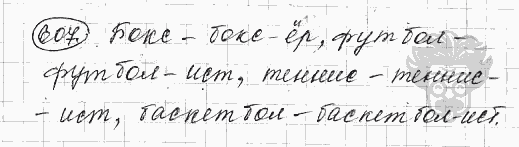 307. Бокс – бокс-ёр, футбол –
футбол – ист, теннис – теннис-
- ист, баскетбол – баскетбол-ист.